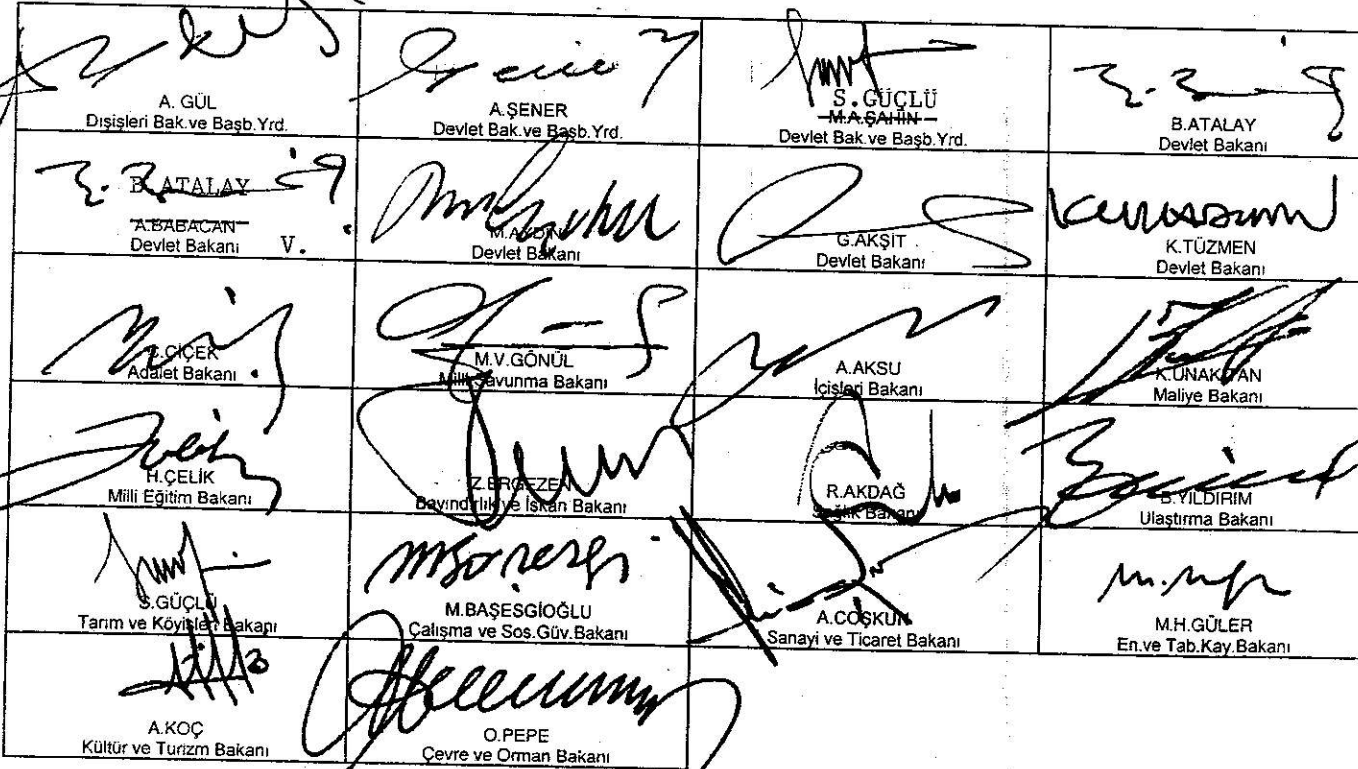 A. GÜL
Dışişleri Bak.ve Başb.Yrd.
A.ŞENER
Devlet Bak.ve Başb.Yrd.
S.GÜÇLÜ
M.A.ŞAHİN
Devlet Bak.ve Başb.Yrd.
B.ATALAY
Devlet Bakanı
B.ATALAY
A.BABACAN
Devlet Bakanı V.
M.AYDIN
Devlet Bakanı
G.AKŞİT
Devlet Bakanı
K.TÜZMEN
Devlet Bakanı
C.ÇİÇEK
Adalet Bakanı
M.V.GÖNÜL
Milli Savunma Bakanı
A.AKSU
İçişleri Bakanı
K.UNAKITAN
Maliye Bakanı
H.ÇELİK
Milli Eğitim Bakanı
Z.ERGEZEN
Bayındırlık ve İskan Bakanı
R.AKDAĞ
Sağlık Bakanı
B.YILDIRIM
Ulaştırma Bakanı
S.GÜÇLÜ
Tarım ve Köyişleri Bakanı
M.BAŞESGİOĞLU
Çalışma ve Sos.Güv.Bakanı
A.COŞKUN
Sanayi ve Ticaret Bakanı
M.H.GÜLER
En.ve Tab.Kay.Bakanı
A.KOÇ
Kültür ve Turizm Bakanı
O.PEPE
Çevre ve Orman Bakanı